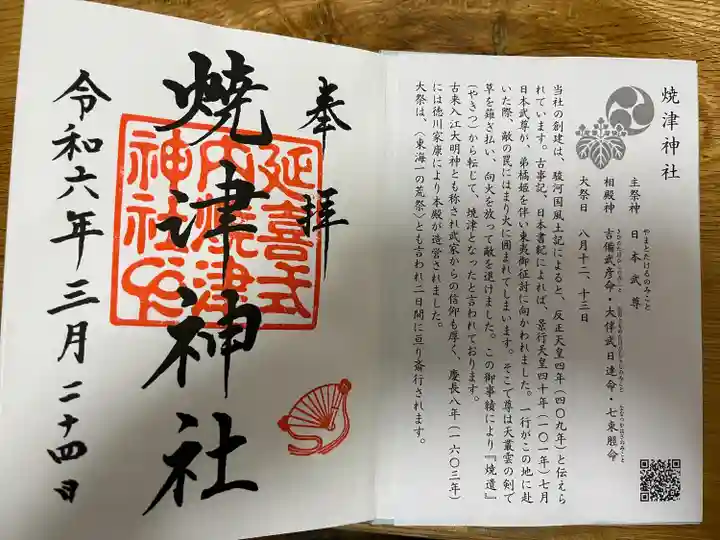 焼津神社
主祭神 日本武尊
やまとたけるのみこと
相殿神 吉備武彦命・大伴武日連命・七束脛命
大祭日 八月十二、十三日
当社の創建は、駿河国風土記によると、反正天皇四年(四〇九年)と伝えら
れています。古事記、日本書紀によれば、景行天皇四十年(一〇一年)七月
日本武尊が、弟橘姫を伴い東夷御征討に向かわれました。一行がこの地に赴
いた際、敵の罠にはまり火に囲まれてしまいます。そこで尊は天叢雲の剣で
草を薙ぎ払い、向火を放って敵を退けました。この御事績により『焼遺』
(やきつ)から転じて、焼津となったと言われております。
古来入江大明神とも称され武家からの信仰も厚く、慶長八年(一六〇三年)
には徳川家康により本殿が造営されました。
大祭は、〈東海一の荒祭〉とも言われ二日間に亘り斎行されます。
奉拝
延喜式
内焼津
神社
焼津神社
令和六年三月二十四日